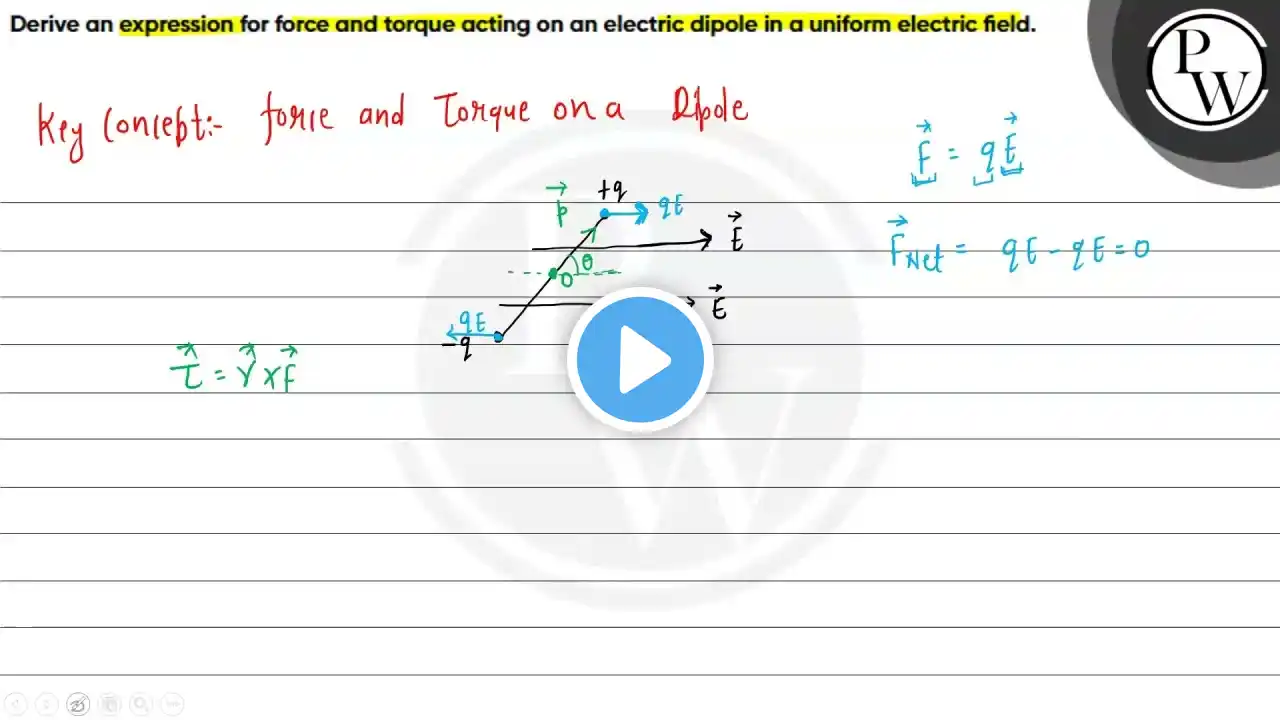 Derive an expression for force and torque acting on an electric dipole in a uniform electric field.
PW
Key Concept:- force and Torque on a Dipole
F⃗ = qE⃗
p⃗ +q qE
E⃗
F⃗Net = qE - qE = 0
θ
O
E⃗
qE
-q
τ⃗ = r⃗ x F⃗